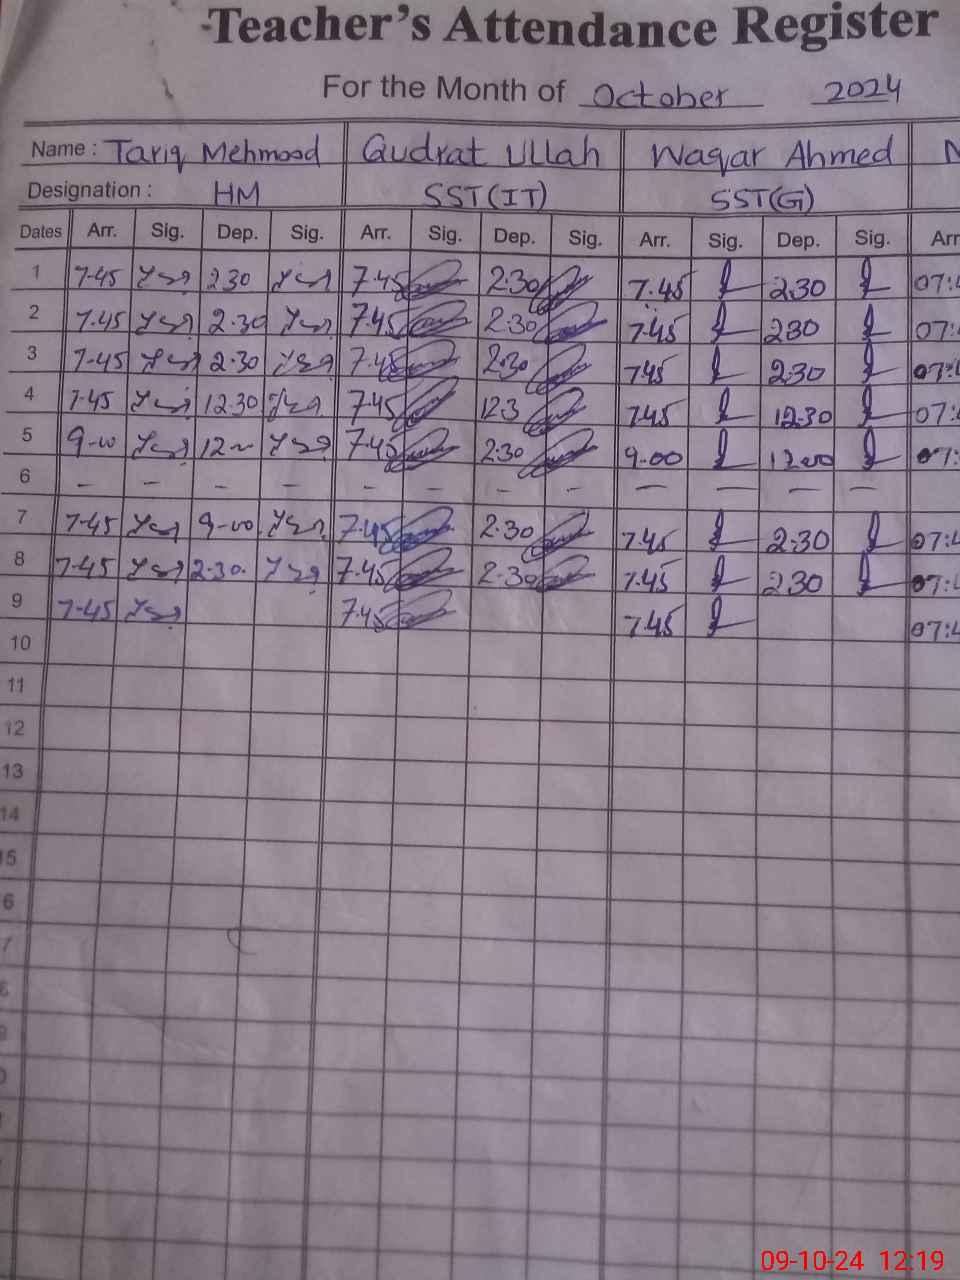 Teacher's Attendance Register
For the Month of October 2024
Name : Tariq Mehmood Qudrat Ullah Waqar Ahmed N
Designation : HM SST(IT) SST(G)
Dates Arr. Sig. Dep. Sig. Arr. Sig. Dep. Sig. Arr. Sig. Dep. Sig. Arr
1 7-45 230 7.45 2.30 7.45 2.30 07:4
2 7.45 2.30 7.45 2.30 7.45 230 07:4
3 7-45 2.30 7.45 2.30 7.45 2.30 07:4
4 7-45 12.30 7.45 12.3 7.45 12.30 07:4
5 9-00 12 7.45 2.30 9.00 12.00 07:
6 - - - - - - - - - - - -
7 7-45 9-00 7.45 2.30 7.45 2.30 07:4
8 7-45 2.30. 7.45 2.30 7.45 230 07:4
9 7-45 7.45 7.45 07:4
10
11
12
13
14
15
6
7
09-10-24 12:19